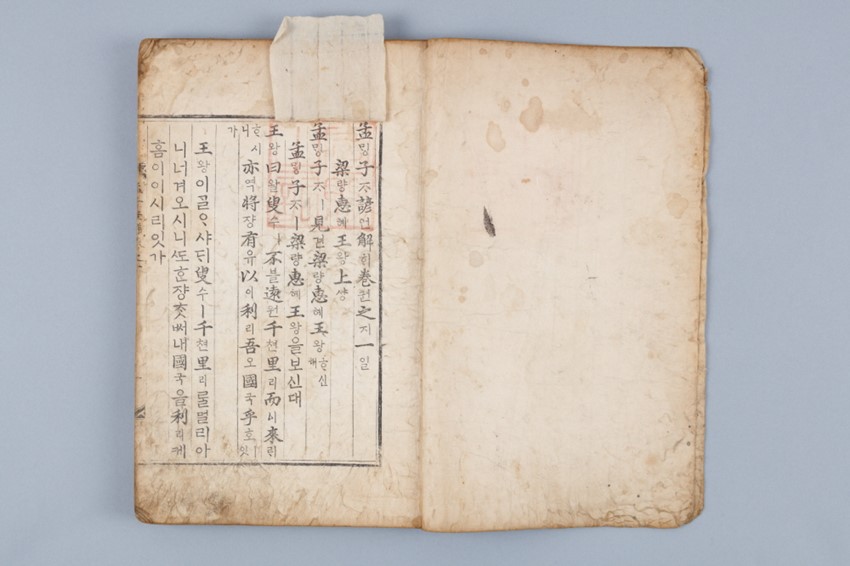 孟밍子ᄌᆞ諺언解ᄒᆡ卷권之지一일
梁량惠혜王왕上샹
孟밍子ᄌᆞㅣ見견梁량惠혜王왕ᄒᆞ신대
孟밍子ᄌᆞㅣ梁량惠혜王왕을보신대
王왕曰왈叟수ㅣ不불遠원千쳔里리而이來ᄅᆡ
ᄒᆞ시니亦역將쟝有유以이利리吾오國국乎호ㅣ잇가
王왕이ᄀᆞᆯᄋᆞ샤ᄃᆡ叟수ㅣ千쳔里리ᄅᆞᆯ멀리아
니너겨오시니ᄯᅩᄒᆞᆫ쟝ᄎᆞᆺᄡᅥ내國국을利리케
홈이이시리잇가